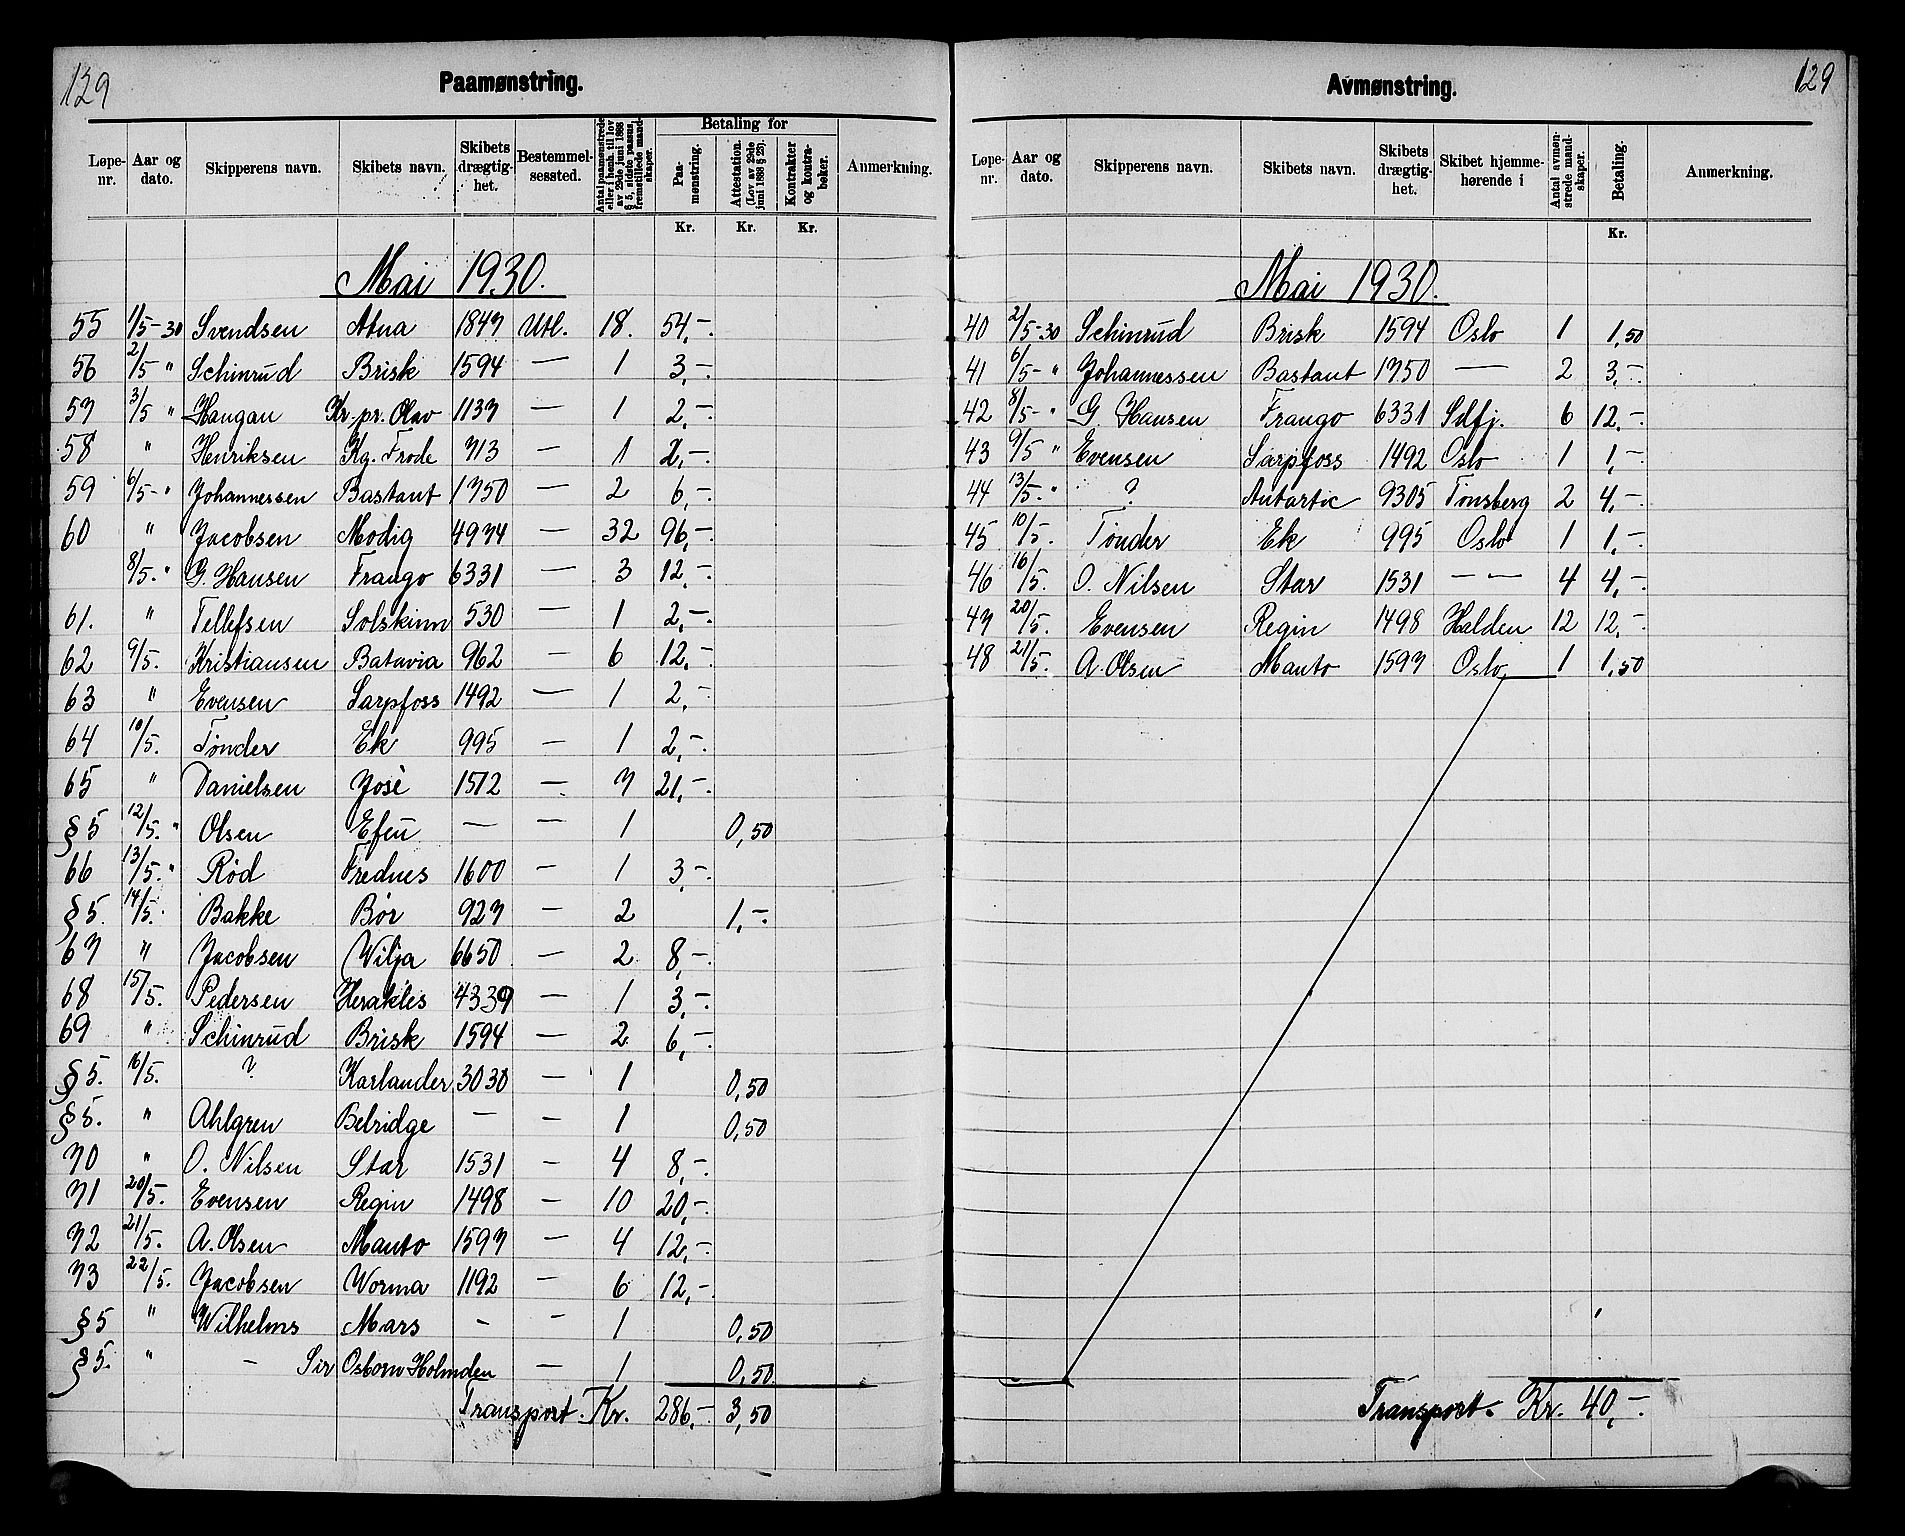 129
Paamønstring.
Løpe-nr. Aar og dato. Skipperens navn. Skibets navn. Skibets drægtighet. Bestemmelsessted. Antal paamønstrede eller i henh. til lov av 29de juni 1888 § 5, sidste passus, fremstillede mandskaper. Betaling for Paamønstring. Attestation. (Lov av 29de juni 1888 § 23). Kontrakter og kontrabøker. Anmerkning.
Kr. Kr. Kr.
Mai 1930.
55 1/5-30 Svendsen Atna 1847 Utl. 18. 54,-.
56 2/5- " Schinrud Brisk 1594 — 1 3,-.
57 3/5 " Haugan Kr.pr. Olav 1137 — 1 2,-.
58 " Henriksen Kg. Frode 713 — 1 2,-.
59 6/5- " Johannessen Bastant 1750 — 2 6,-.
60 " Jacobsen Modig 4974 — 32 96,-.
8/5. " G. Hansen Frango 6331 — 3 12,-.
61. " Tellefsen Solskinn 530 — 1 2,-.
62 9/5. Kristiansen Batavia 962 — 6 12,-.
63 " Evensen Sarpfoss 1492 — 1 2,-.
64 10/5. Tønder Ek 995 — 1 2,-.
65 " Danielsen José 1512 — 7 21,-.
§5 12/5. " Olsen Efeu — — 1 0,50
66 13/5. " Rød Frednes 1600 — 1 3,-.
§5. 14/5. Bakke Bør 927 — 2 1,-.
67 " Jacobsen Wilja 6650 — 2 8,-.
68 15/5. Pedersen Herakles 4339 — 1 3,-.
69 " Schinrud Brisk 1594 — 2 6,-.
§5. 16/5. ? Karlander 3030 — 1 0,50
§5. " Ahlgren Belridge — — 1 0,50
70 " O. Nilsen Star 1531 — 4 8,-.
71 20/5. Evensen Regin 1498 — 10 20,-.
72 21/5. A. Olsen Manto 1597 — 4 12,-.
73 22/5. Jacobsen Worma 1192 — 6 12,-.
§5 " Wilhelms Mars - - 1 0,50
§5. " — Sir Osborn Holmden — 1 0,50
Transport. Kr. 286,- 3,50
129
Avmønstring.
Løpe-nr. Aar og dato. Skipperens navn. Skibets navn. Skibets drægtighet. Skibet hjemmehørende i Antal avmønstrede mandskaper. Betaling. Anmerkning.
Kr.
Mai 1930.
40 2/5-30 Schinrud Brisk 1594 Oslo 1 1,50
41 6/5- " Johannessen Bastant 1750 — 2 3,-.
42 8/5- " G. Hansen Frango 6331 Sdfj. 6 12,-.
43 9/5 " Evensen Sarpfoss 1492 Oslo 1 1,-.
44 13/5. " ? Antartic 9305 Tønsberg 2 4,-.
45 10/5. Tønder Ek 995 Oslo 1 1,-.
46 16/5. O. Nilsen Star 1531 — — 4 4,-.
47 20/5. Evensen Regin 1498 Halden 12 12,-.
48 21/5. A. Olsen Manto 1597 Oslo. 1 1,50
Transport. Kr. 40,-.